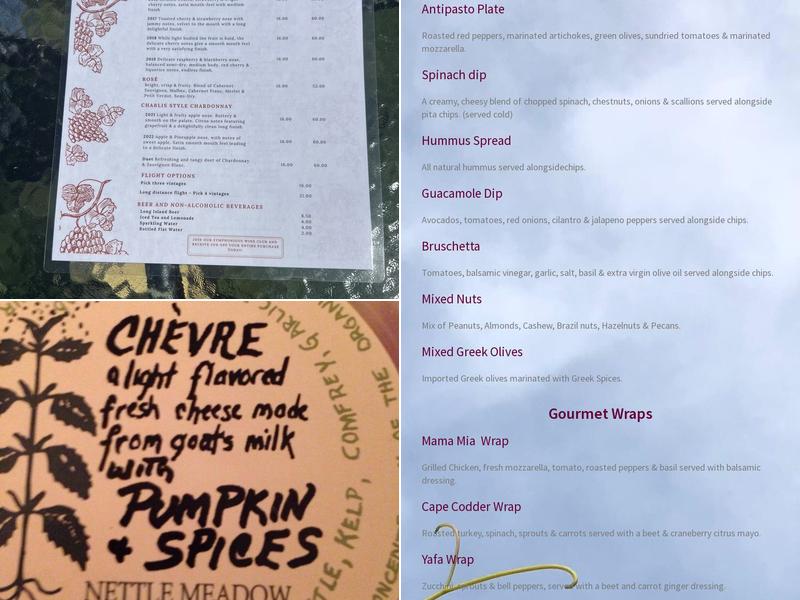 cherry notes, satin mouth-feel with medium
finish
2017 Toasted cherry & strawberry nose with 16.00 60.00
jammy notes, velvet to the mouth with a long
delightful finish.
2018 While light bodied the fruit is bold, the 16.00 60.00
delicate cherry notes give a smooth mouth feel
with a very satisfying finish.
2020 Delicate raspberry & blackberry nose, 16.00 60.00
balanced semi-dry, medium body, red cherry &
liquorice notes, endless finish.
ROSÉ
Bright, crisp & fruity. Blend of Cabernet 16.00 52.00
Sauvignon, Malbec, Cabernet Franc, Merlot &
Petit Verdot. Semi-Dry.
CHABLIS STYLE CHARDONNAY
2021 Light & fruity apple nose. Buttery & 16.00 60.00
smooth on the palate. Citrus notes featuring
grapefruit & a delightfully clean long finish.
2022 Apple & Pineapple nose, with notes of 16.00 60.00
sweet apple. Satin smooth mouth feel leading
to a delicate finish.
Duet Refreshing and tangy duet of Chardonnay 16.00 60.00
& Sauvignon Blanc.
FLIGHT OPTIONS
Pick three vintages 16.00
Long distance flight - Pick 4 vintages 21.00
BEER AND NON-ALCOHOLIC BEVERAGES
Long Island Beer 8.50
Iced Tea and Lemonade 4.00
Sparkling Water 4.00
Bottled Flat Water 2.00
JOIN OUR SYMPHONIOUS WINE CLUB AND
RECEIVE OFF YOUR ENTIRE PURCHASE
TODAY!
CHÈVRE
a light flavored
fresh cheese made
from goat's milk
with
PUMPKIN
& SPICES
NETTLE MEADOW
KELP, COMFREY, GARLIC
THE ORGAN
Antipasto Plate
Roasted red peppers, marinated artichokes, green olives, sundried tomatoes & marinated
mozzarella.
Spinach dip
A creamy, cheesy blend of chopped spinach, chestnuts, onions & scallions served alongside
pita chips. (served cold)
Hummus Spread
All natural hummus served alongsidechips.
Guacamole Dip
Avocados, tomatoes, red onions, cilantro & jalapeno peppers served alongside chips.
Bruschetta
Tomatoes, balsamic vinegar, garlic, salt, basil & extra virgin olive oil served alongside chips.
Mixed Nuts
Mix of Peanuts, Almonds, Cashew, Brazil nuts, Hazelnuts & Pecans.
Mixed Greek Olives
Imported Greek olives marinated with Greek Spices.
Gourmet Wraps
Mama Mia Wrap
Grilled Chicken, fresh mozzarella, tomato, roasted peppers & basil served with balsamic
dressing.
Cape Codder Wrap
Roasted turkey, spinach, sprouts & carrots served with a beet & craneberry citrus mayo.
Yafa Wrap
Zucchini, sprouts & bell peppers, served with a beet and carrot ginger dressing.